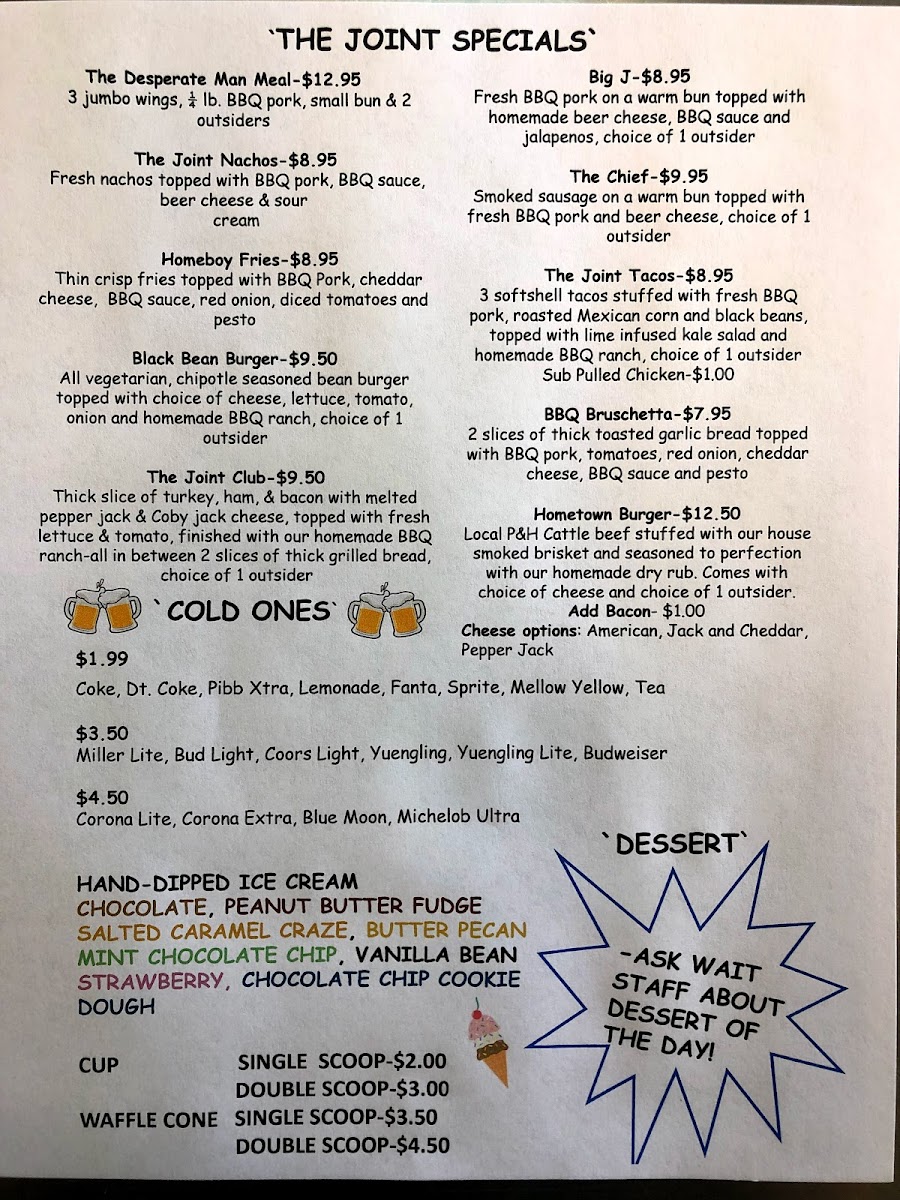 `THE JOINT SPECIALS`
The Desperate Man Meal-$12.95
3 jumbo wings, ¼ lb. BBQ pork, small bun & 2
outsiders
The Joint Nachos-$8.95
Fresh nachos topped with BBQ pork, BBQ sauce,
beer cheese & sour
cream
Homeboy Fries-$8.95
Thin crisp fries topped with BBQ Pork, cheddar
cheese, BBQ sauce, red onion, diced tomatoes and
pesto
Black Bean Burger-$9.50
All vegetarian, chipotle seasoned bean burger
topped with choice of cheese, lettuce, tomato,
onion and homemade BBQ ranch, choice of 1
outsider
The Joint Club-$9.50
Thick slice of turkey, ham, & bacon with melted
pepper jack & Coby jack cheese, topped with fresh
lettuce & tomato, finished with our homemade BBQ
ranch-all in between 2 slices of thick grilled bread,
choice of 1 outsider
Big J-$8.95
Fresh BBQ pork on a warm bun topped with
homemade beer cheese, BBQ sauce and
jalapenos, choice of 1 outsider
The Chief-$9.95
Smoked sausage on a warm bun topped with
fresh BBQ pork and beer cheese, choice of 1
outsider
The Joint Tacos-$8.95
3 softshell tacos stuffed with fresh BBQ
pork, roasted Mexican corn and black beans,
topped with lime infused kale salad and
homemade BBQ ranch, choice of 1 outsider
Sub Pulled Chicken-$1.00
BBQ Bruschetta-$7.95
2 slices of thick toasted garlic bread topped
with BBQ pork, tomatoes, red onion, cheddar
cheese, BBQ sauce and pesto
Hometown Burger-$12.50
Local P&H Cattle beef stuffed with our house
smoked brisket and seasoned to perfection
with our homemade dry rub. Comes with
choice of cheese and choice of 1 outsider.
Add Bacon- $1.00
Cheese options: American, Jack and Cheddar,
Pepper Jack
`COLD ONES`
$1.99
Coke, Dt. Coke, Pibb Xtra, Lemonade, Fanta, Sprite, Mellow Yellow, Tea
$3.50
Miller Lite, Bud Light, Coors Light, Yuengling, Yuengling Lite, Budweiser
$4.50
Corona Lite, Corona Extra, Blue Moon, Michelob Ultra
HAND-DIPPED ICE CREAM
CHOCOLATE, PEANUT BUTTER FUDGE
SALTED CARAMEL CRAZE, BUTTER PECAN
MINT CHOCOLATE CHIP, VANILLA BEAN
STRAWBERRY, CHOCOLATE CHIP COOKIE
DOUGH
CUP SINGLE SCOOP-$2.00
DOUBLE SCOOP-$3.00
WAFFLE CONE SINGLE SCOOP-$3.50
DOUBLE SCOOP-$4.50
`DESSERT`
-ASK WAIT
STAFF ABOUT
DESSERT OF
THE DAY!